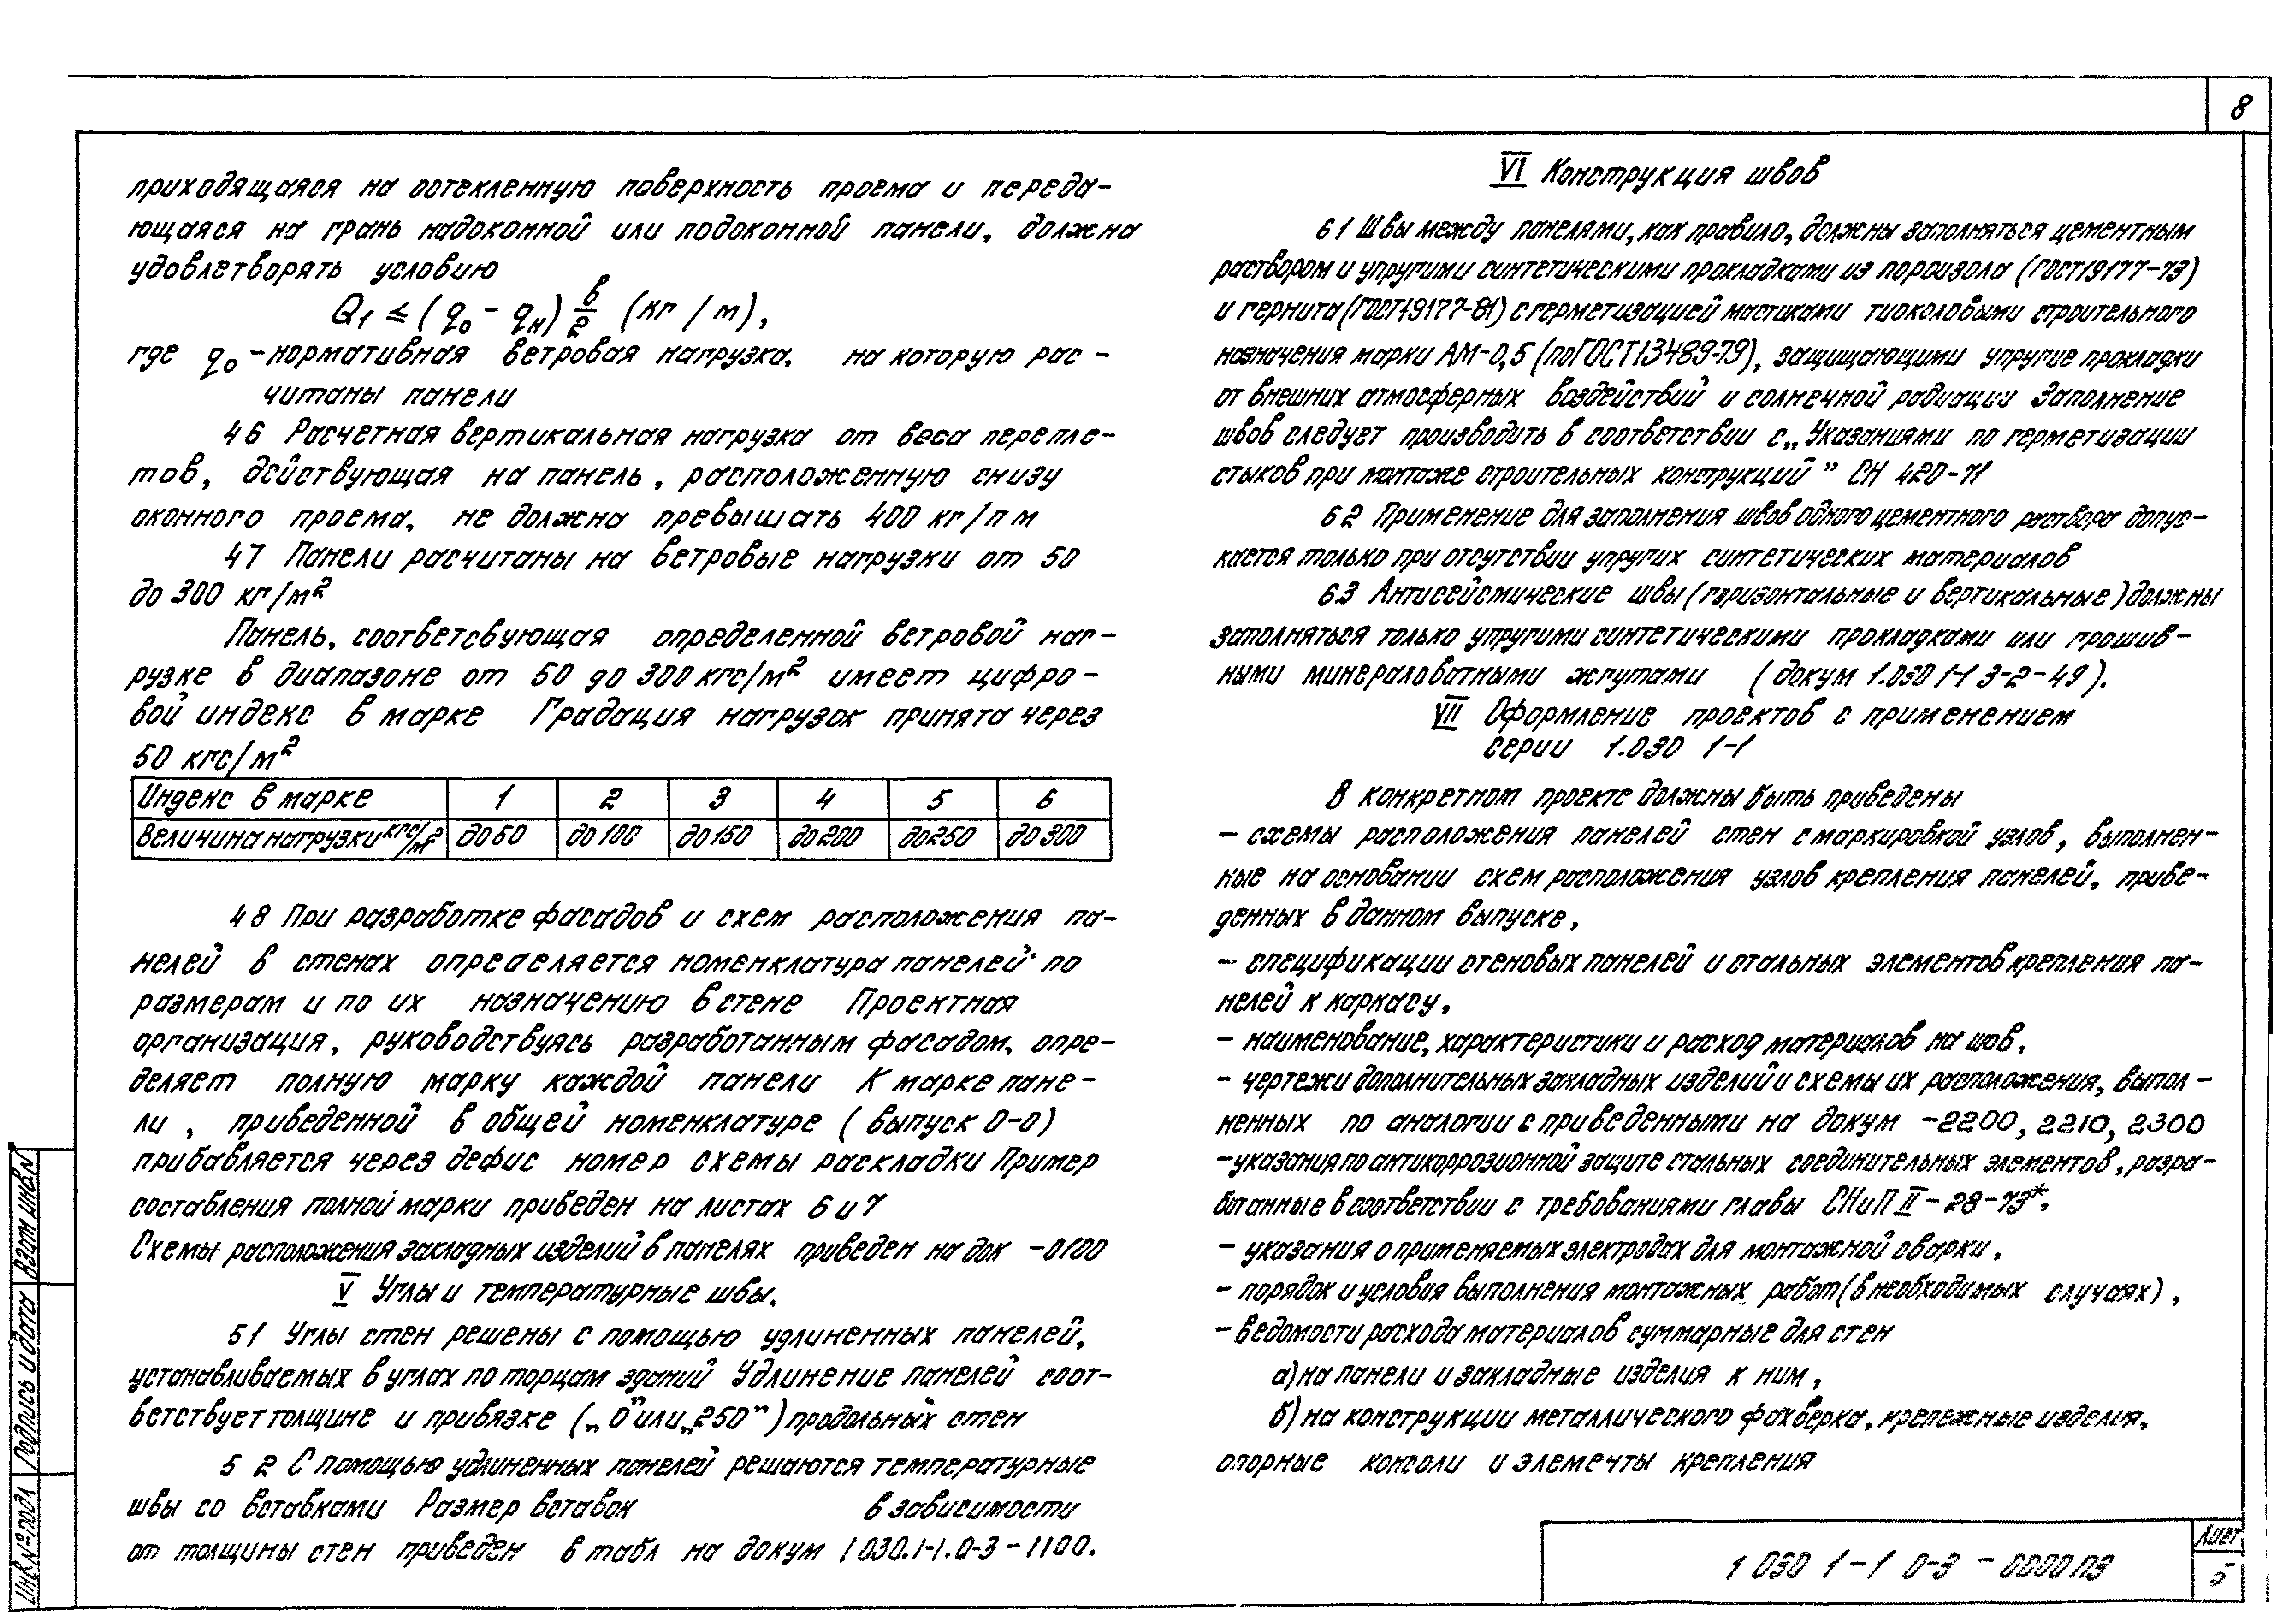 8
приходящаяся на остекленную поверхность проема и переда-
ющаяся на грань надоконной или подоконной панели, должна
удовлетворять условию
Q₁ ≤ (q₀ - qн) в/2 (кг / м),
где q₀ - нормативная ветровая нагрузка, на которую рас -
читаны панели
46 Расчетная вертикальная нагрузка от веса перепле-
тов, действующая на панель, расположенную снизу
оконного проема, не должна превышать 400 кг/п м
47 Панели расчитаны на ветровые нагрузки от 50
до 300 кг/м²
Панель, соответсвующая определенной ветровой наг-
рузке в диапазоне от 50 до 300 кгс/м² имеет цифро -
вой индекс в марке Градация нагрузок принята через
50 кгс/м²
Индекс в марке 1 2 3 4 5 6
Величина нагрузки кгс/м² до 50 до 100 до 150 до 200 до 250 до 300
48 При разработке фасадов и схем расположения па-
нелей в стенах определяется номенклатура панелей по
размерам и по их назначению в стене Проектная
организация, руководствуясь разработанным фасадом, опре-
деляет полную марку каждой панели К марке пане -
ли, приведенной в общей номенклатуре (выпуск 0-0)
прибавляется через дефис номер схемы раскладки Пример
составления полной марки приведен на листах 6 и 7
Схемы расположения закладных изделий в панелях приведен на док -0100
V Углы и температурные швы.
51 Углы стен решены с помощью удлиненных панелей,
устанавливаемых в углах по торцам зданий Удлинение панелей соот-
ветствует толщине и привязке („0" или „250") продольных стен
5 2 С помощью удлиненных панелей решаются температурные
швы со вставками Размер вставок в зависимости
от толщины стен приведен в табл на докум 1 030.1-1.0-3-1100.
VI Конструкция швов
61 Швы между панелями, как правило, должны заполняться цементным
раствором и упругими синтетическими прокладками из пороизола (ГОСТ19177-73)
и гернита (ГОСТ19177-81) с герметизацией мастиками тиоколовыми строительного
назначения марки АМ-0,5 (по ГОСТ13489-79), защищающими упругие прокладки
от внешних атмосферных воздействий и солнечной радиации Заполнение
швов следует производить в соответствии с „Указаниями по герметизации
стыков при монтаже строительных конструкций" СН 420-71
62 Применение для заполнения швов одного цементного раствора допус-
кается только при отсутствии упругих синтетических материалов
63 Антисейсмические швы (горизонтальные и вертикальные) должны
заполняться только упругими синтетическими прокладками или прошив-
ными минераловатными жгутами (докум 1.030 1-1 3-2-49).
VII Оформление проектов с применением
серии 1.030 1-1
В конкретном проекте должны быть приведены
- схемы расположения панелей стен с маркировкой узлов, выполнен-
ные на основании схем расположения узлов крепления панелей, приве-
денных в данном выпуске,
- спецификации стеновых панелей и стальных элементов крепления па-
нелей к каркасу,
- наименование, характеристики и расход материалов на шов,
- чертежи дополнительных закладных изделий и схемы их расположения, выпол -
ненных по аналогии с приведенными на докум -2200, 2210, 2300
- указания по антикоррозионной защите стальных соединительных элементов, разра-
ботанные в соответствии с требованиями главы СНиП II-28-73*,
- указания о применяемых электродах для монтажной сварки,
- порядок и условия выполнения монтажных работ (в необходимых случаях),
- ведомости расхода материалов суммарные для стен
а) на панели и закладные изделия к ним,
б) на конструкции металлического фахверка, крепежные изделия,
опорные консоли и элементы крепления
Инв.№ подл Подпись и дата Взам инв.N
1 030 1-1 0-3 - 0000 ПЗ
Лист
5